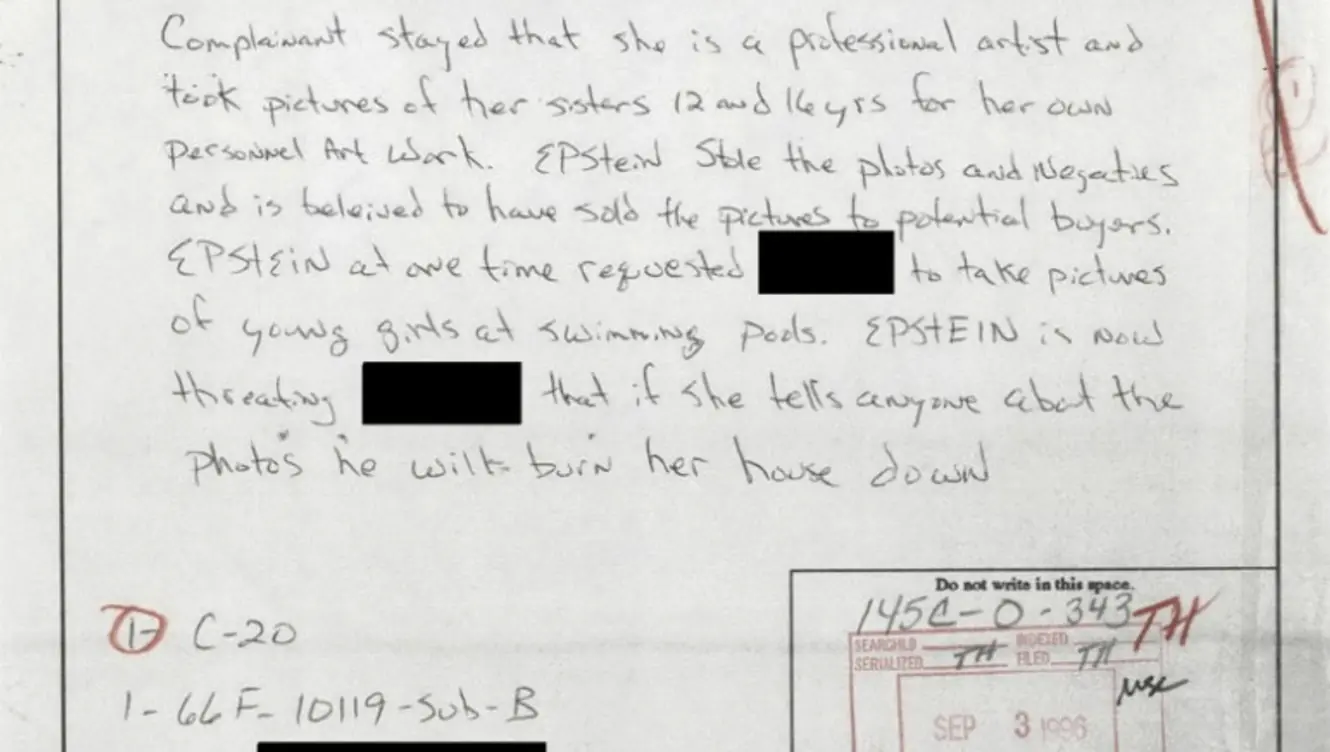 Complainant stayed that she is a professional artist and
took pictures of her sisters 12 and 16 yrs for her own
Personnel Art Work. EPStein Stole the photos and Negaties
and is beleived to have sold the pictures to potential buyers.
EPStEiN at one time requested to take pictures
of young girls at swimming pools. EPStEIN is now
threating that if she tells anyone about the
photos he will burn her house down
Do not write in this space.
145C-0-343
TH
1- C-20
SEARCHED INDEXED
SERIALIZED TH FILED TH
1-66F-10119-Sub-B
SEP 3 1996